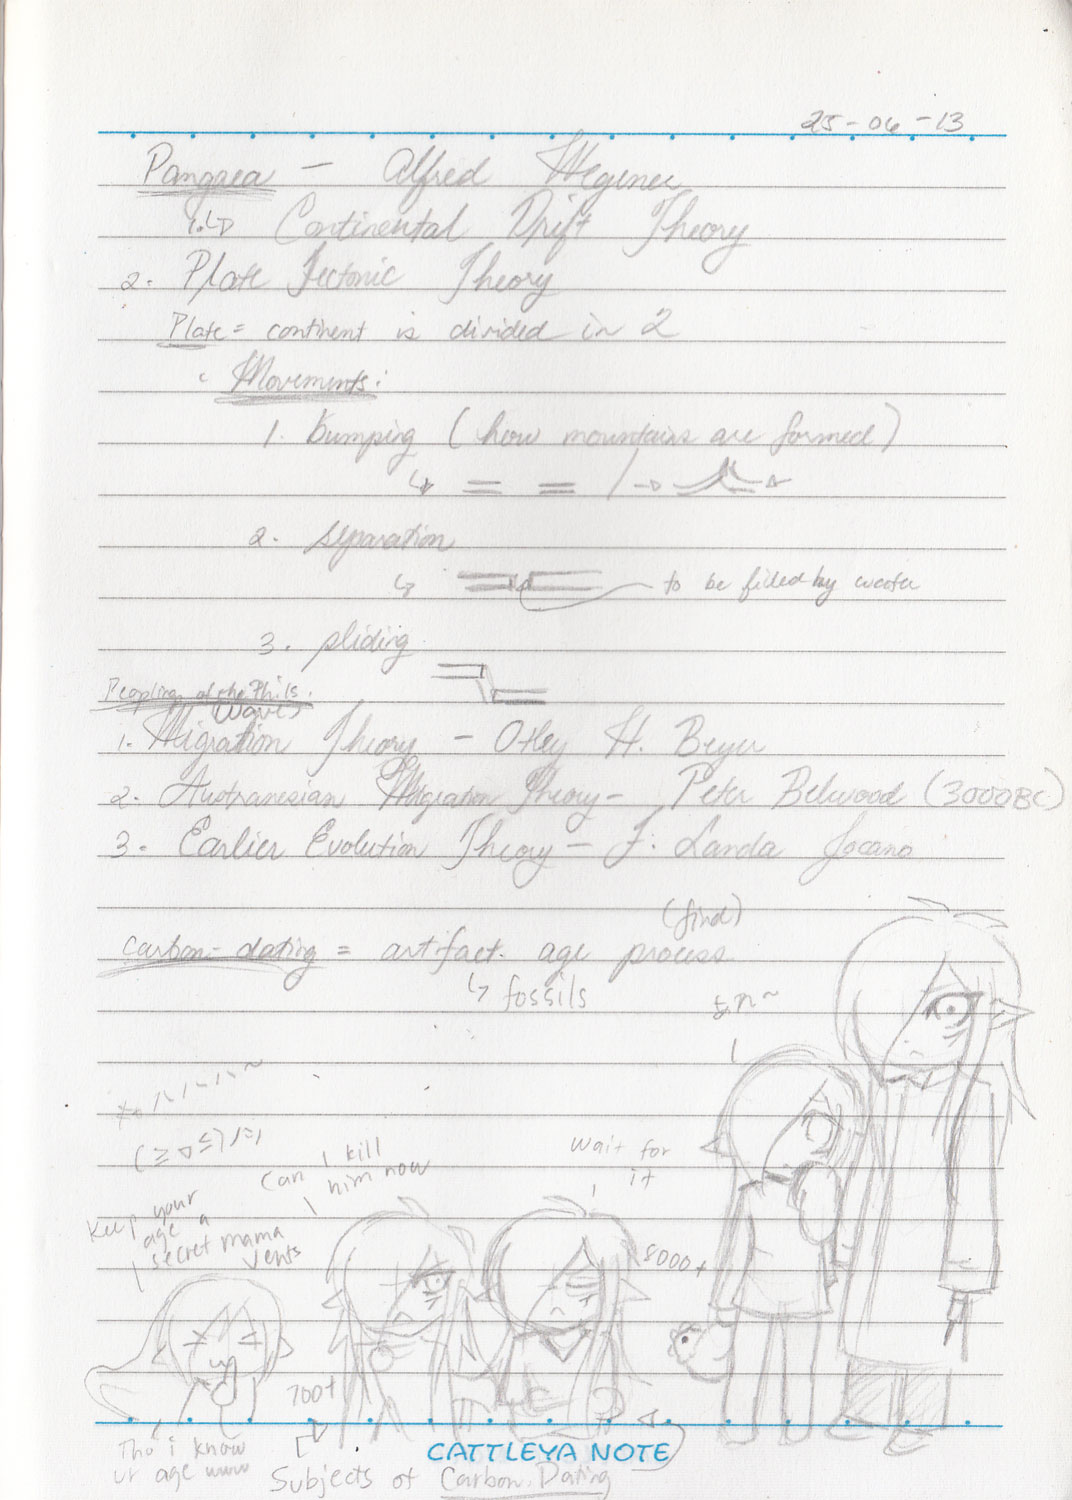 25-06-13
Pangaea - Alfred Wegener
1. ↳ Continental Drift Theory
2. Plate Tectonic Theory
Plate = continent is divided in 2
Movements:
1. Bumping (how mountains are formed)
2. separation
↳ to be filled by water
3. sliding
Peopling of the Phils.
Waves
1. Migration Theory - Otley H. Beyer
2. Austranesian Migration Theory - Peter Belwood (3000BC)
3. Earlier Evolution Theory - F. Landa Jocano
(find)
carbon-dating = artifact age process
↳ fossils
(≥▽≤)
Can I kill
him now
wait for
it
Keep your
age a
secret mama
vents
8000+
700+
Tho i know
ur age www
CATTLEYA NOTE
Subjects of Carbon Dating